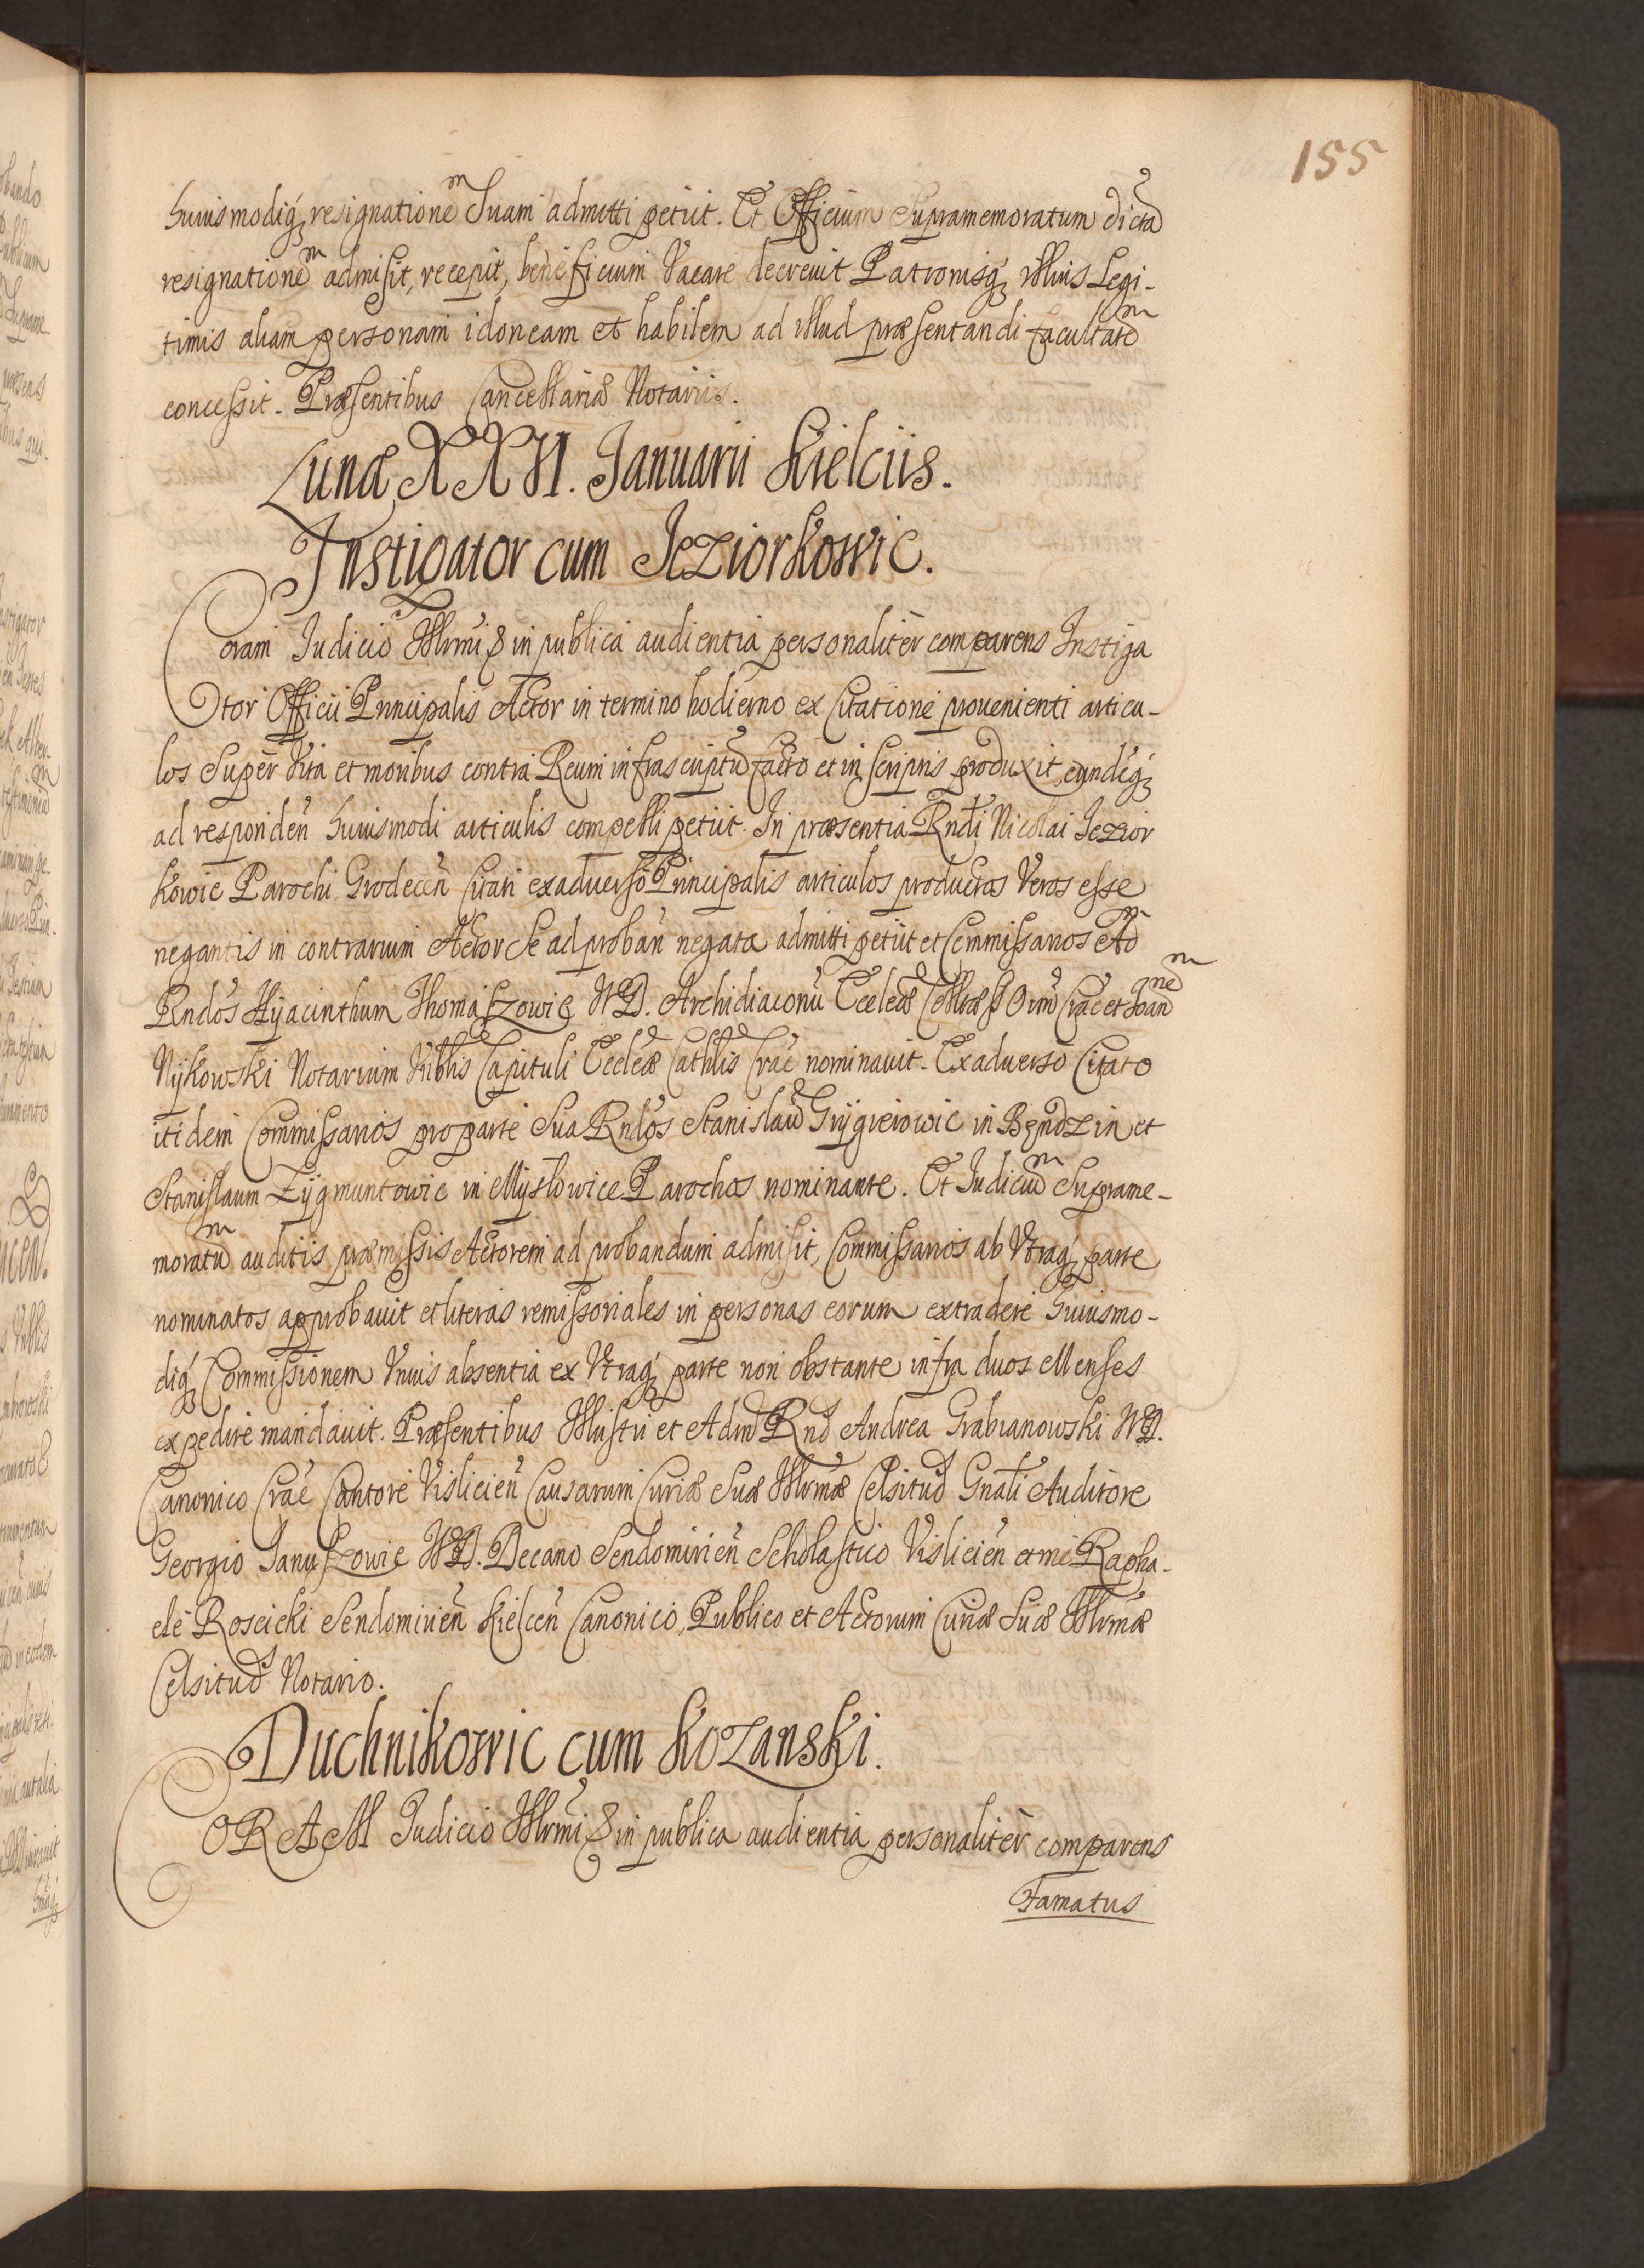 155
huiusmodiq3 resignationem suam admitti petiit. Et Officium supramemoratum dictā
resignationem admisit, recepit, beneficium Vacare decreuit Patronisq3 illius Legi-
timis aliam personam idoneam et habilem ad illud præsentandi facultatem
concessit. Præsentibus Cancellariæ Notariis.
Lunæ XXVI. Ianuarii Kielciis.
Instigator cum Ieziorkowic.
Coram Iudicio Illrmi & in publica audientia personalitèr comparens Instiga
tor Officii Principalis Actor in termino hodierno ex Citatione prouenienti articu-
los super Vita et moribus contra Reum infrascriptū facto et in scriptis produxit, eundéq3
ad responden̄ huiusmodi articulis compelli petiit. In præsentia Rndi Nicolai Iezior
kowic Parochi Grodecen̄ Citati ex aduerso Principalis articulos productos Veros esse
negantis in contrarium Actor se ad proban̄ negata admitti petiit et Commissarios Adm
Rndos Hyacinthum Thomaszowic VID. Archidiaconū Eccleæ Collræ SS Orm̄ Crac et Ioannem
Nijkowski Notarium Vnblis Capituli Eccleæ Cathlis Crac nominauit. Ex aduerso Citato
itidem Commissarios pro parte sua Rndos Stanislaū Grijgierowic in Bendzin et
Stanislaum Zijgmuntowic in Mysłowice Parochos nominante. Et Iudicium Suprame-
moratum auditis præmissis Actorem ad probandum admisit, Commissarios ab Vtraq3 parte
nominatos approbauit et literas remissoriales in personas eorum extradere huiusmo-
diq3 Commissionem Vnius absentia ex Vtraq3 parte non obstante infra duos Menses
expedire mandauit. Præsentibus Illustri et Adm Rnd Andrea Grabianowski VID.
Canonico Crac Cantore Vislicien̄ Causarum Curiæ Suæ Illrmæ Celsitud Gnali Auditore
Georgio Ianuszowic VID. Decano Sendomirien̄ Scholastico Vislicien̄ et me Rapha-
ele Roscicki Sendomirien̄ Kielcen̄ Canonico, Publico et Actorum Curiæ Suæ Illrmæ
Celsitud Notario.
Duchnikowic cum Kozanski.
CORAM Iudicio Illrmi & in publica audientia personalitèr comparens
Famatus